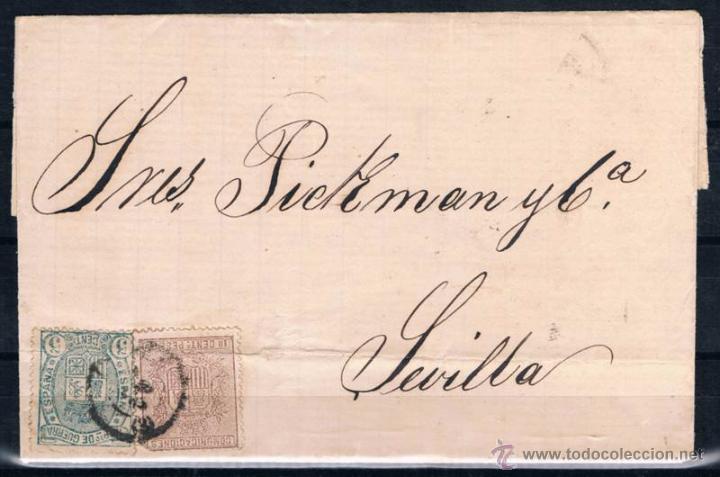 Sres. Pickman y Cª.
Sevilla
5 CENT. 5
ESPAÑA
IMPTO DE GUERRA
10 CENTS PESETA
COMUNICACIONES
© www.todocoleccion.net